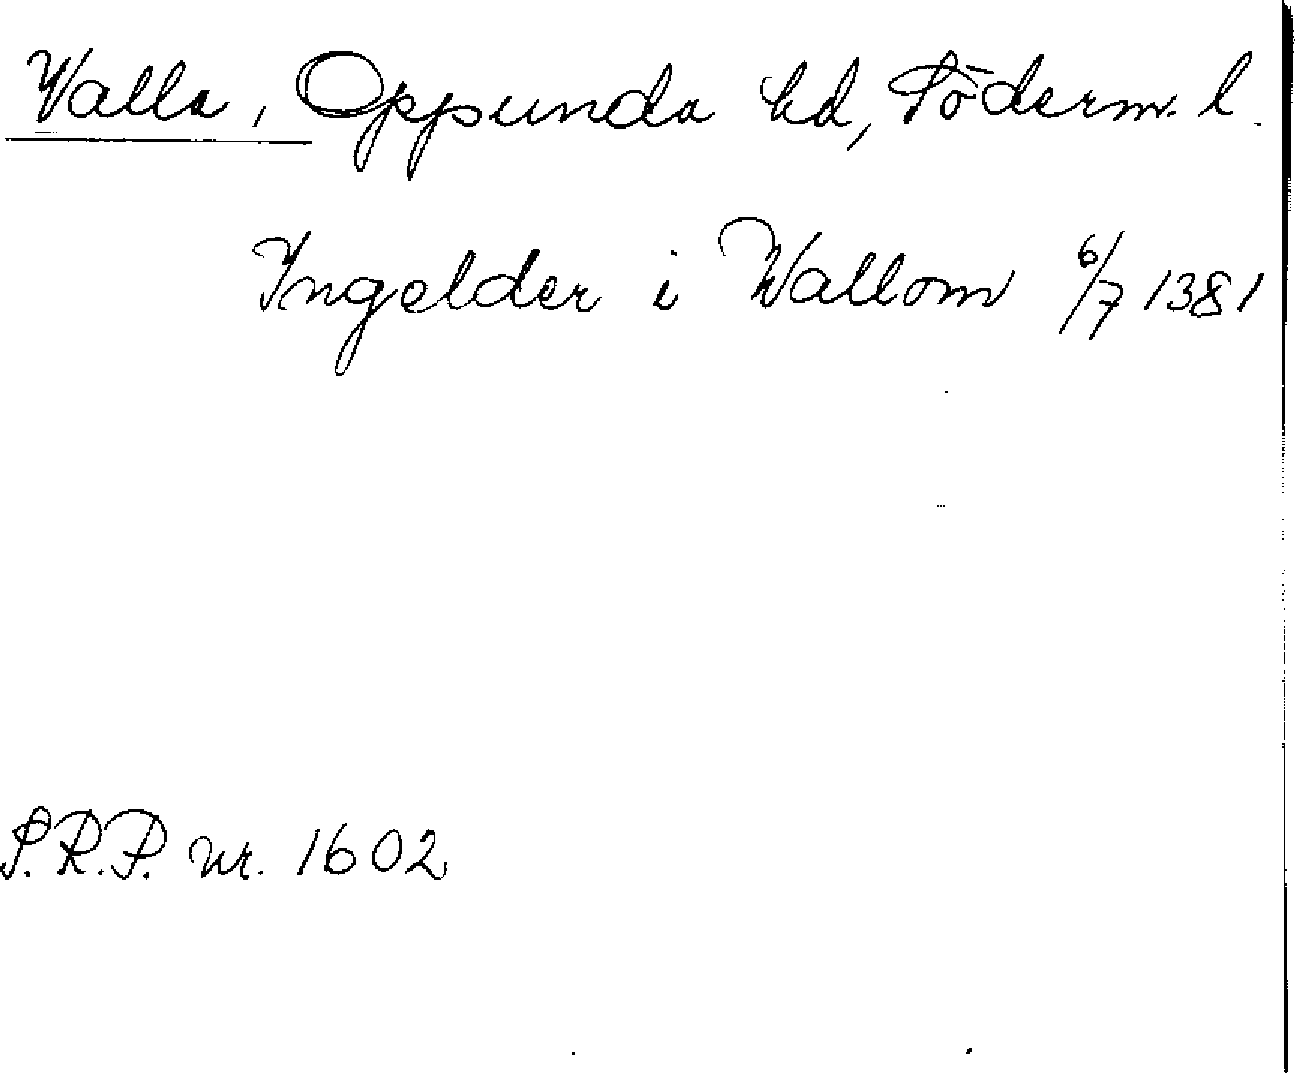 Valla, Oppunda hd, Söderm. l.
Ingelder i Wallom 6/7 1381
S.R.P. nr. 1602